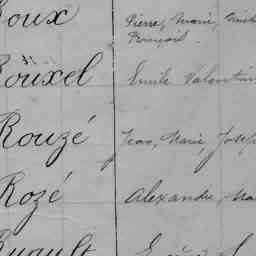 Roux Pierre, Marie,
François.
Rouxel Emile Valentin
Rouzé Jean, Marie, Joseph
Rozé Alexandre, Ma
Ruault